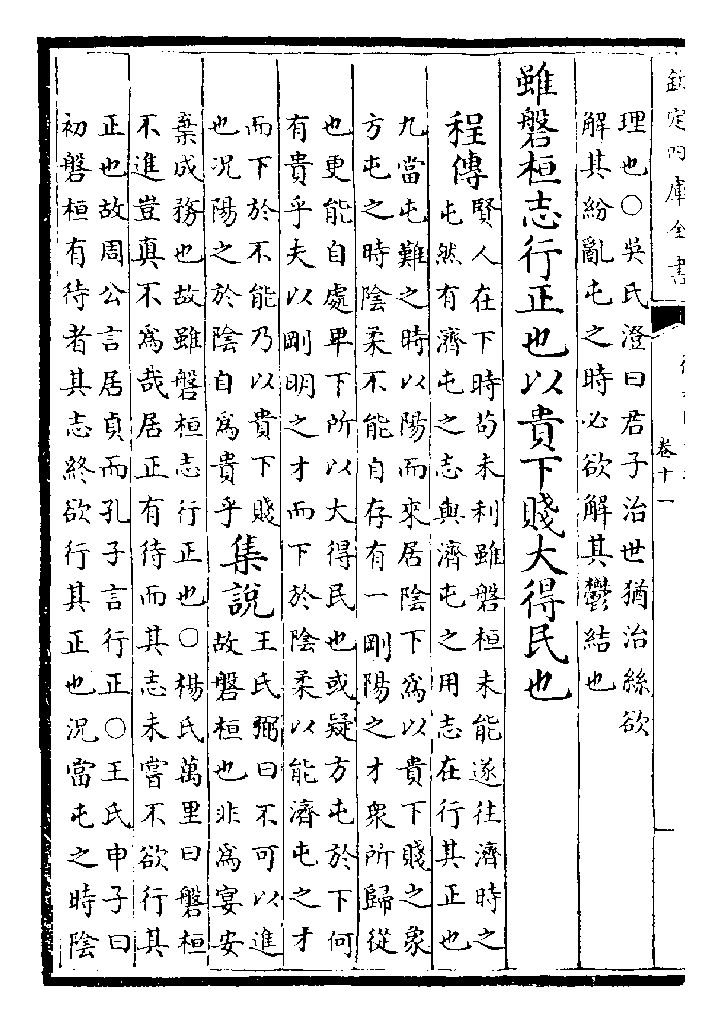 欽定四庫全書
卷十一
理也○吳氏澄曰君子治世猶治絲欲
解其紛亂屯之時必欲解其鬱結也
雖磐桓志行正也以貴下賤大得民也
程傳
賢人在下時苟未利雖磐桓未能遂往濟時之
屯然有濟屯之志與濟屯之用志在行其正也
九當屯難之時以陽而來居陰下為以貴下賤之象
方屯之時陰柔不能自存有一剛陽之才衆所歸從
也更能自處卑下所以大得民也或疑方屯於下何
有貴乎夫以剛明之才而下於陰柔以能濟屯之才
而下於不能乃以貴下賤
也況陽之於陰自為貴乎
集說
王氏弼曰不可以進
故磐桓也非為宴安
棄成務也故雖磐桓志行正也○楊氏萬里曰磐桓
不進豈真不為哉居正有待而其志未嘗不欲行其
正也故周公言居貞而孔子言行正○王氏申子曰
初磐桓有待者其志終欲行其正也況當屯之時陰